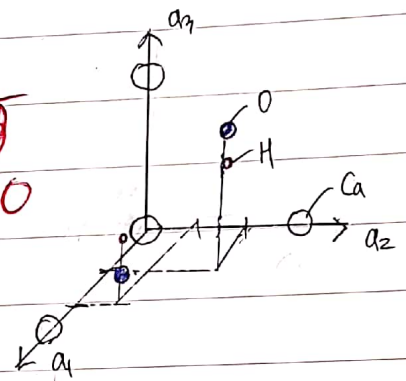 a₃
O
H
Ca
a₂
a₁
0